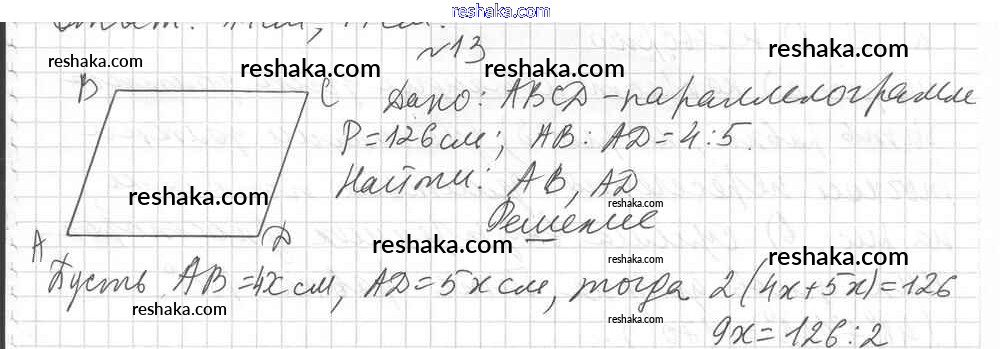 reshaka.com
Ответ:
№13
reshaka.com
reshaka.com
reshaka.com
B C Дано: ABCD - параллелограмм
P = 126 см; AB : AD = 4 : 5.
reshaka.com
Найти: AB, AD
reshaka.com
reshaka.com
Решение
A D
reshaka.com
reshaka.com
Пусть AB = 4x см, AD = 5x см, тогда 2(4x + 5x) = 126
reshaka.com
reshaka.com
reshaka.com
9x = 126 : 2